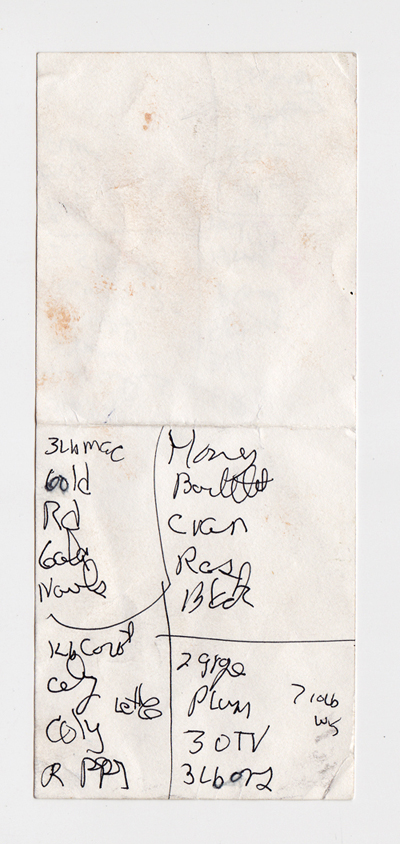 3Lb mac
Gold
Rd
Gala
Navls
Honey
Bartlett
Cran
Rasp
Black
1Lb Carrot
Cely
Lettc
Coly
R PPP
2 grpe
Plum
3 OTV
3Lb org
? 10Lb